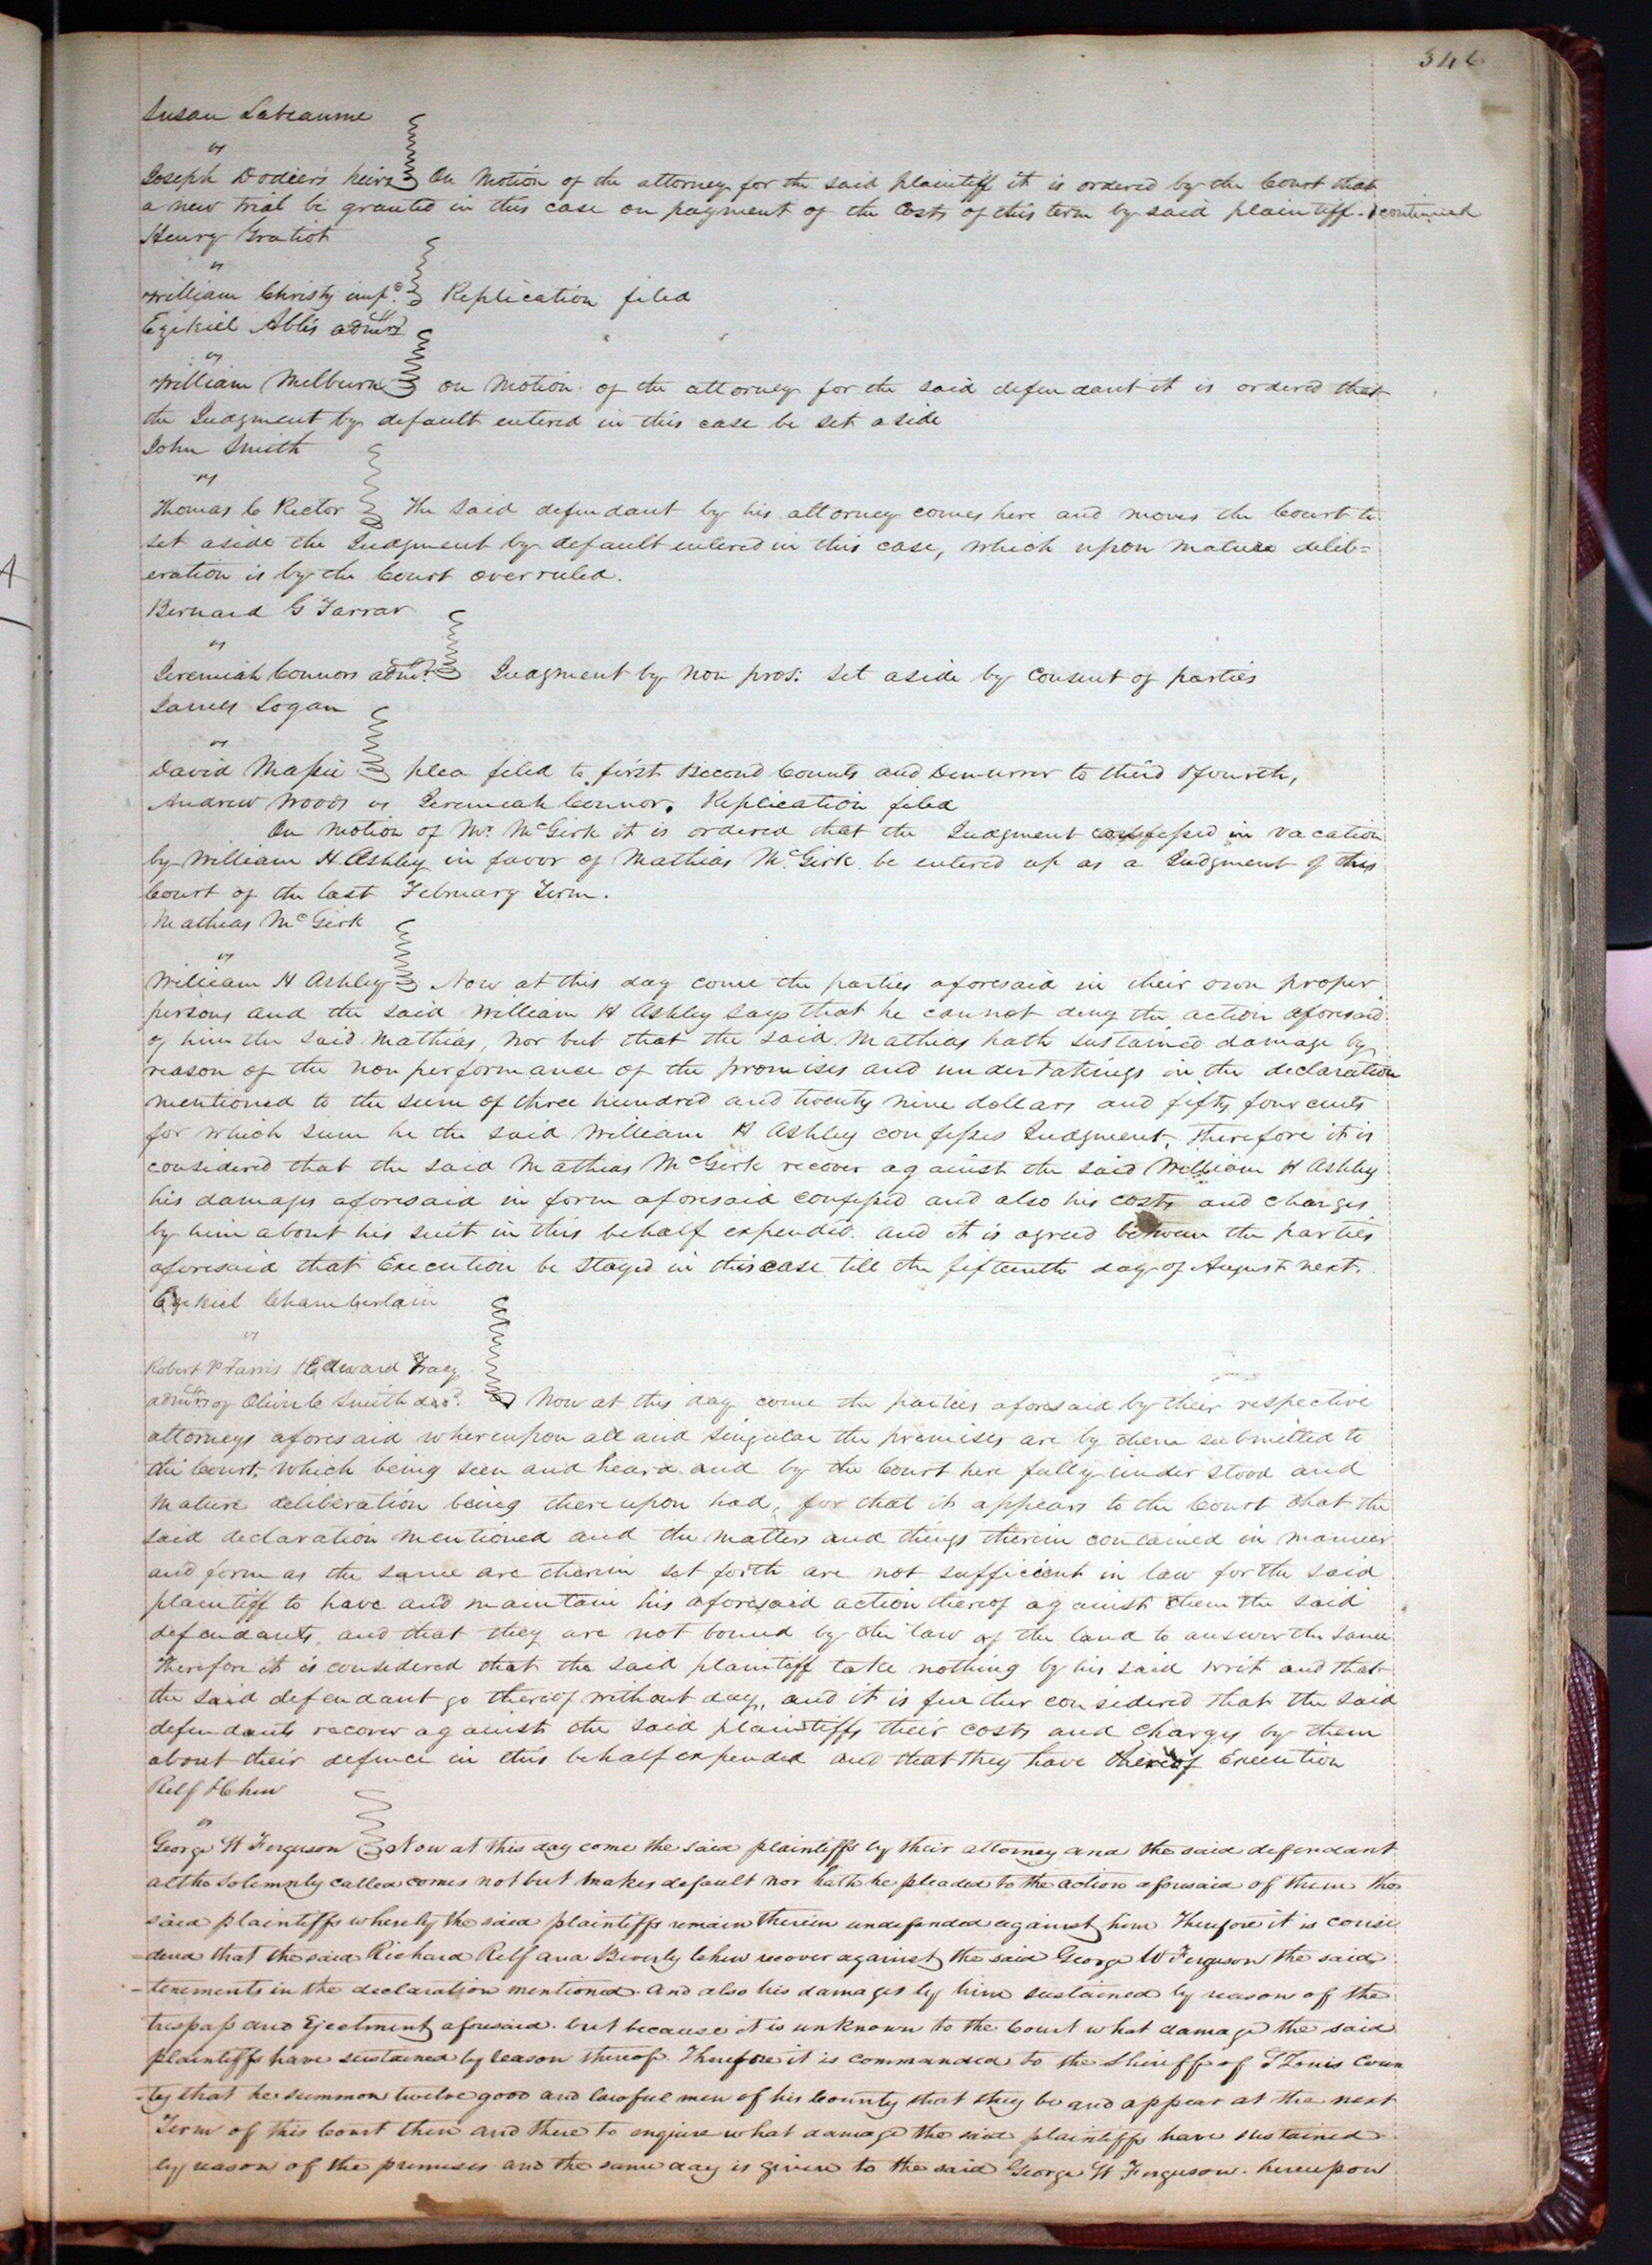 346
Susan Labeaume
vs
Joseph Dodier's heirs On Motion of the attorney for the said plaintiff it is ordered by the Court that
a new trial be granted in this case on payment of the Costs of this term by said plaintiff. & continued
Henry Gratiot
vs
William Christy Replication filed
Ezekiel Able's admrs
vs
William Milburn on Motion of the attorney for the said defendant it is ordered that
the Judgment by default entered in this case be set aside
John Smith
vs
Thomas C Rector The said defendant by his attorney comes here and moves the Court to
set aside the Judgment by default entered in this case, which upon mature delib=
eration is by the Court overruled.
Bernard G Farrar
vs
Jeremiah Connors admr. Judgment by non pros: set aside by consent of parties
James Logan
vs
David Massie plea filed to first & second Counts and Demurrer to third & fourth,
Andrew Woods vs Jeremiah Connor. Replication filed
On motion of Mr. McGirk it is ordered that the Judgment confessed in vacation
by William H. Ashley in favor of Mathias McGirk be entered up as a Judgment of this
Court of the last February Term.
Mathias McGirk
vs
William H Ashley Now at this day come the parties aforesaid in their own proper
persons and the said William H Ashley says that he cannot deny the action aforesaid
of him the said Mathias, nor but that the said Mathias hath sustained damage by
reason of the non performance of the promises and undertakings in the declaration
mentioned to the sum of three hundred and twenty nine dollars and fifty four cents
for which sum he the said William H Ashley confesses Judgment, Therefore it is
considered that the said Mathias McGirk recover against the said William H Ashley
his damages aforesaid in form aforesaid confessed and also his costs and charges
by him about his suit in this behalf expended. and it is agreed between the parties
aforesaid that Execution be stayed in this case till the fifteenth day of August next.
Ezekiel Chamberlain
vs
Robert P Farris & Edward Tracy
admrs of Oliver C Smith decd. Now at this day come the parties aforesaid by their respective
attorneys aforesaid whereupon all and singular the premises are by them submitted to
the Court, which being seen and heard and by the Court here fully understood and
mature deliberation being thereupon had, for that it appears to the Court that the
said declaration mentioned and the matters and things therein contained in manner
and form as the same are therein set forth are not sufficient in law for the said
plaintiff to have and maintain his aforesaid action thereof against them the said
defendants, and that they are not bound by the law of the land to answer the same
Therefore it is considered that the said plaintiff take nothing by his said writ and that
the said defendant go thereof without day, and it is further considered that the said
defendants recover against the said plaintiffs their costs and charges by them
about their defence in this behalf expended and that they have thereof Execution
Relf & Chew
vs
George W Ferguson Now at this day come the said plaintiffs by their attorney and the said defendant
altho solemnly called comes not but makes default nor hath he pleaded to the action aforesaid of them the
said plaintiffs whereby the said plaintiffs remain therein undefended against him Therefore it is consi
-dered that the said Richard Relf and Beverly Chew recover against the said George W Ferguson the said
-tenements in the declaration mentioned. and also his damages by him sustained by reason of the
trespass and Ejectment aforesaid. but because it is unknown to the Court what damage the said
plaintiffs have sustained by reason thereof. Therefore it is commanded to the Sheriff of St Louis Coun
-ty that he summon twelve good and lawful men of his County that they be and appear at the next
Term of this Court then and there to enquire what damage the said plaintiffs have sustained
by reason of the premises and the same day is given to the said George W Ferguson. hereupon